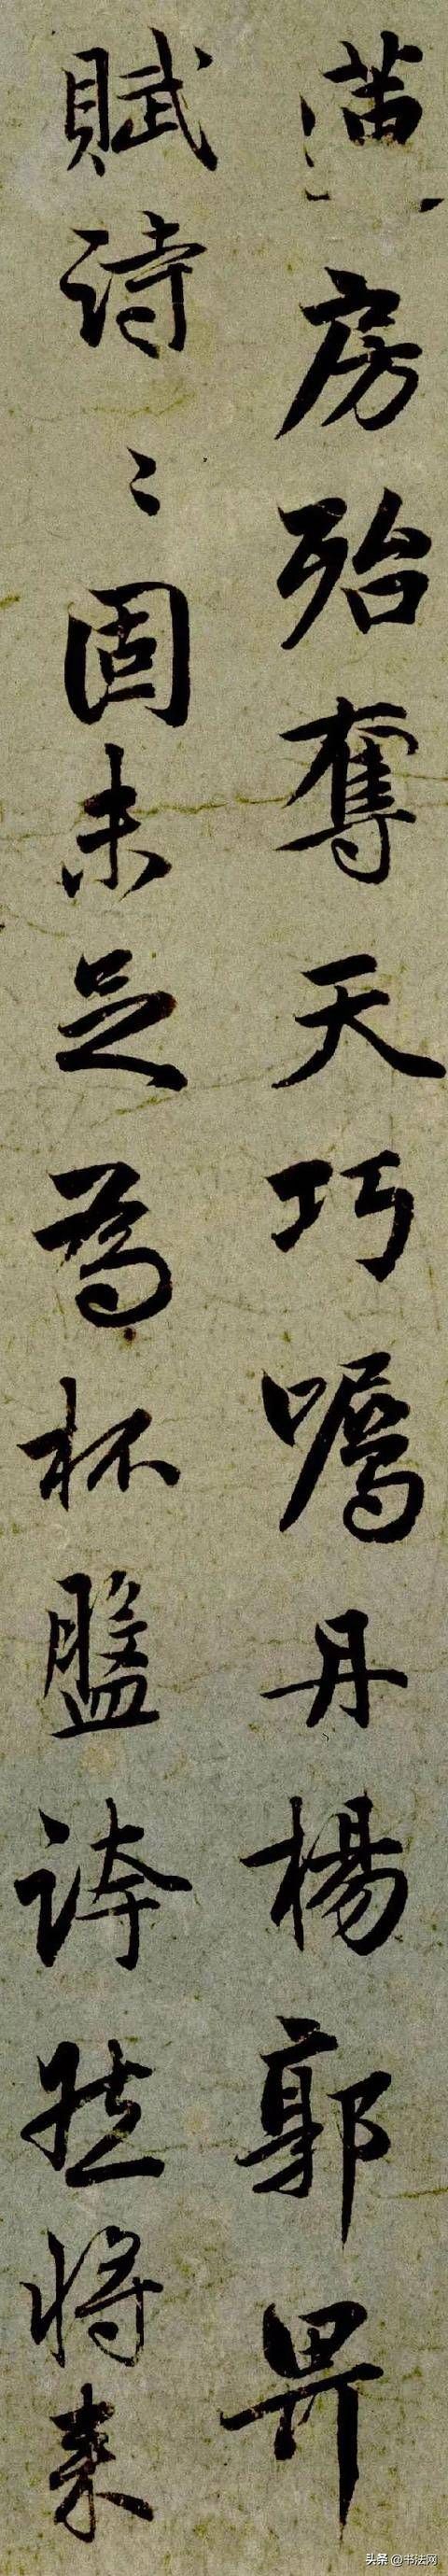 房殆奪天巧囑丹楊郭畀
賦詩〻固未足為杯盤誇然將來
头条 @书法网